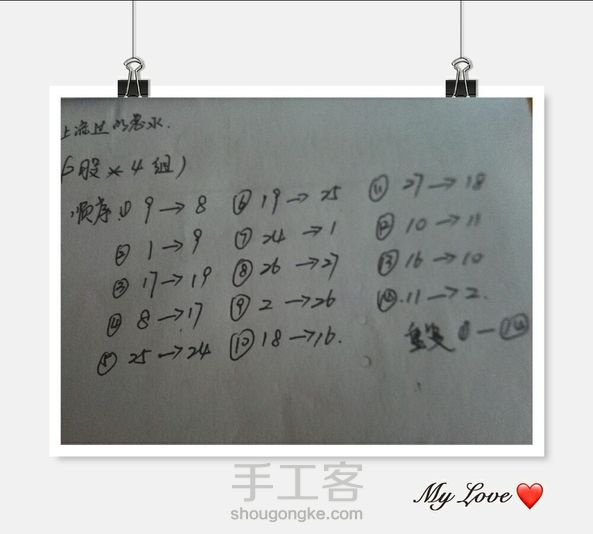 上流过的忽水.
6股×4组)
顺序 ① 9→8
② 1→9
③ 17→19
④ 8→17
⑤ 25→24
⑥ 19→25
⑦ 24→1
⑧ 26→27
⑨ 2→26
⑩ 18→16.
⑪ 27→18
⑫ 10→11
⑬ 16→10
⑭ 11→2.
重复 ①—⑭
My Love
手工客
shougongke.com